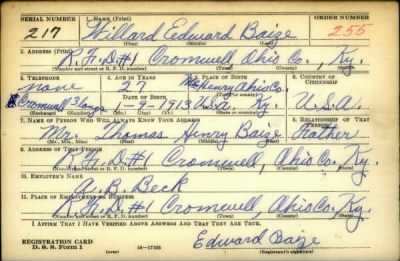 SERIAL NUMBER 1. NAME (Print) ORDER NUMBER
217 Willard Eedward Baize 255
(First) (Middle) (Last)
2. ADDRESS (Print)
R.F.D#1 Cromwell Ohio Co., Ky.
(Number and street or R. F. D. number) (Town) (County) (State)
3. TELEPHONE 4. AGE IN YEARS 5. PLACE OF BIRTH 6. COUNTRY OF CITIZENSHIP
none 27 McHenry Ohio Co.
Cromwell 3 longs DATE OF BIRTH
1-9-1913 U.S.A. Ky. U.S.A.
(Exchange) (Number) (Mo.) (Day) (Yr.) (State or country)
7. NAME OF PERSON WHO WILL ALWAYS KNOW YOUR ADDRESS 8. RELATIONSHIP OF THAT PERSON
Mr. Thomas Henry Baize Father
(Mr., Mrs., Miss) (First) (Middle) (Last)
9. ADDRESS OF THAT PERSON
R.F.D#1 Cromwell, Ohio Co. Ky.
(Number and street or R. F. D. number) (Town) (County) (State)
10. EMPLOYER'S NAME
A. B. Beck
11. PLACE OF EMPLOYMENT OR BUSINESS
R.F.D#1 Cromwell, Ohio Co. Ky.
(Number and street or R. F. D. number) (Town) (County) (State)
I AFFIRM THAT I HAVE VERIFIED ABOVE ANSWERS AND THAT THEY ARE TRUE.
REGISTRATION CARD
D. S. S. Form 1 (over) 16—17105
Edward Baize
(Registrant's signature)